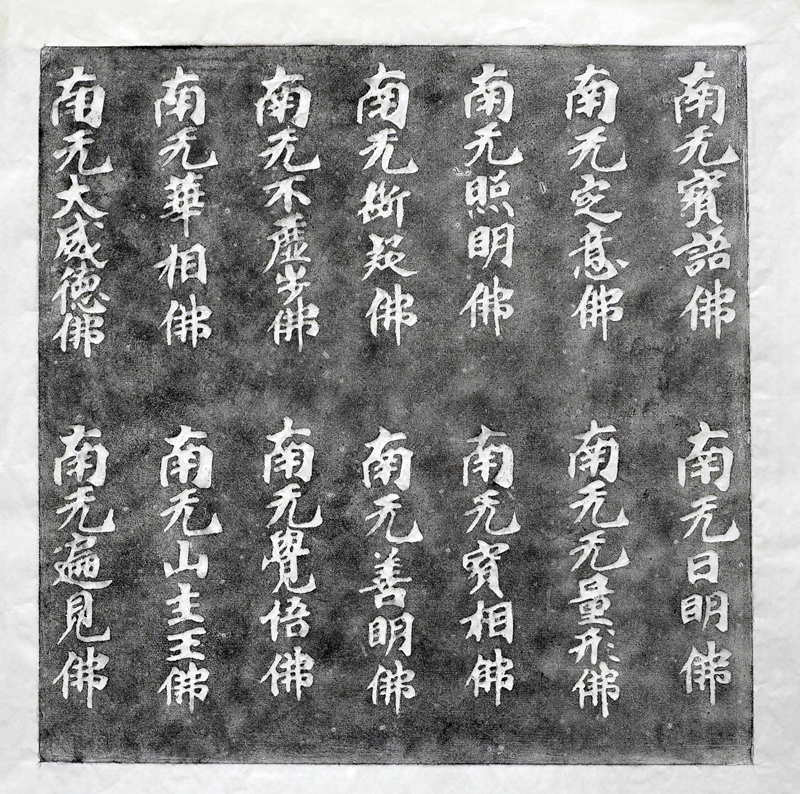 南无寳語佛
南无日明佛
南无定意佛
南无无量形佛
南无照明佛
南无寳相佛
南无斷疑佛
南无善明佛
南无不虛步佛
南无覺悟佛
南无華相佛
南无山主王佛
南无大威德佛
南无遍見佛